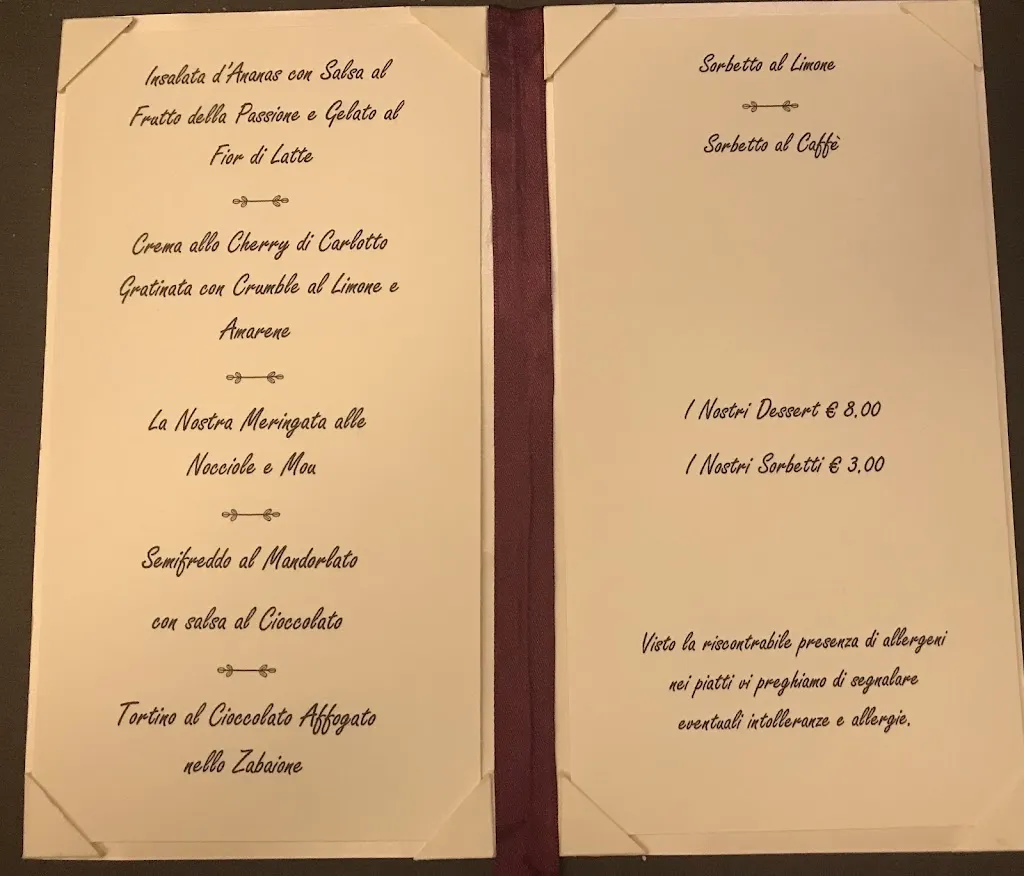 Insalata d'Ananas con Salsa al
Frutto della Passione e Gelato al
Fior di Latte
Crema allo Cherry di Carlotto
Gratinata con Crumble al Limone e
Amarene
La Nostra Meringata alle
Nocciole e Mou
Semifreddo al Mandorlato
con salsa al Cioccolato
Tortino al Cioccolato Affogato
nello Zabaione
Sorbetto al Limone
Sorbetto al Caffè
I Nostri Dessert € 8,00
I Nostri Sorbetti € 3,00
Visto la riscontrabile presenza di allergeni
nei piatti vi preghiamo di segnalare
eventuali intolleranze e allergie.